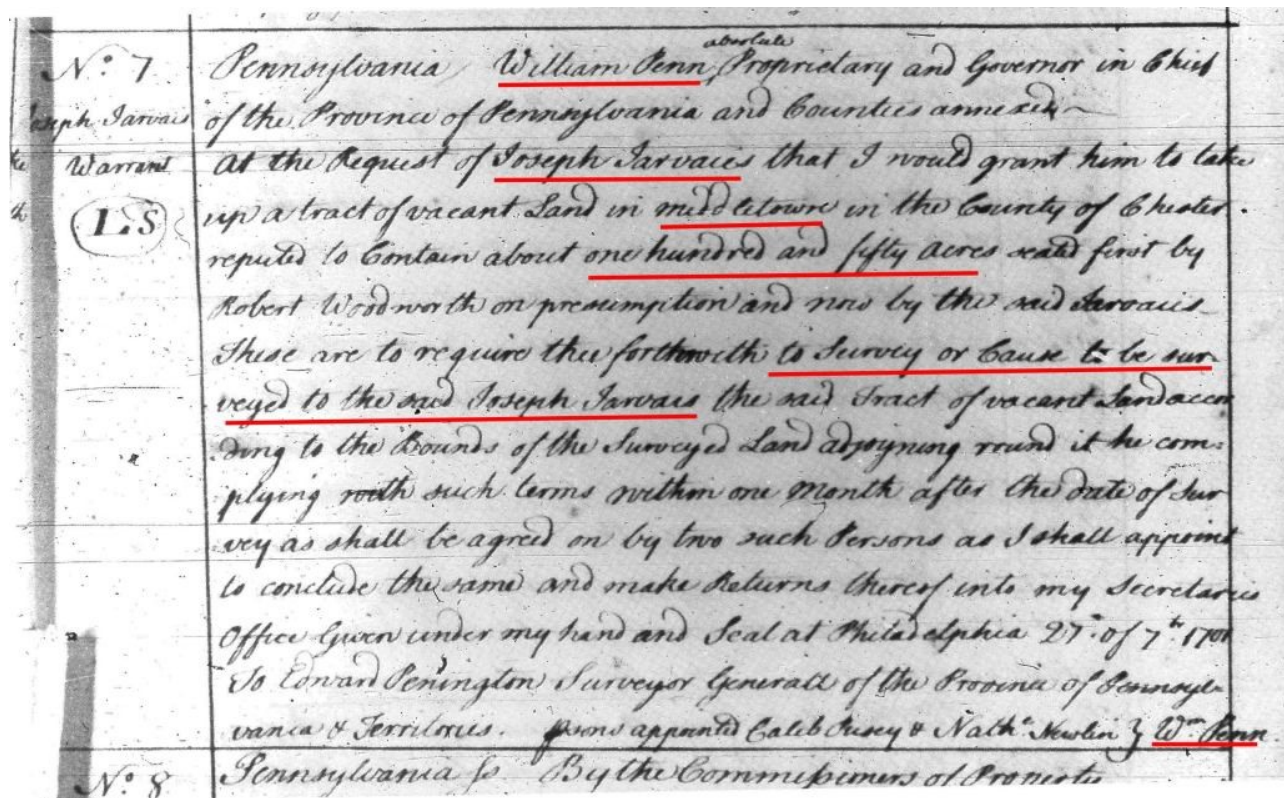 absolute
No. 7 Pennsylvania William Penn Proprietary and Governor in Chief
Joseph Jarvais of the Province of Pennsylvania and Counties annexed
Warrant At the Request of Joseph Jarvaies that I would grant him to take
LS up a tract of vacant Land in middletowne in the County of Chester.
reputed to Contain about one hundred and fifty acres seated first by
Robert Woodworth on presumption and now by the said Jarvaies
These are to require thee forthwith to Survey or Cause to be sur-
veyed to the said Joseph Jarvais the said Tract of vacant Land accor
ding to the Bounds of the Surveyed Land adjoyning round it he com-
plying with such terms within one Month after the date of Sur
vey as shall be agreed on by two such Persons as I shall appoint
to conclude the same and make Returns thereof into my Secretaries
Office Given under my hand and Seal at Philadelphia 27th of 7th 1701
To Edward Penington Surveyor Generall of the Province of Pennsyl-
vania & Territories. psons appointed Caleb Pusey & Nathn Newlin } Wm Penn
No. 8 Pennsylvania ss By the Commissioners of Property